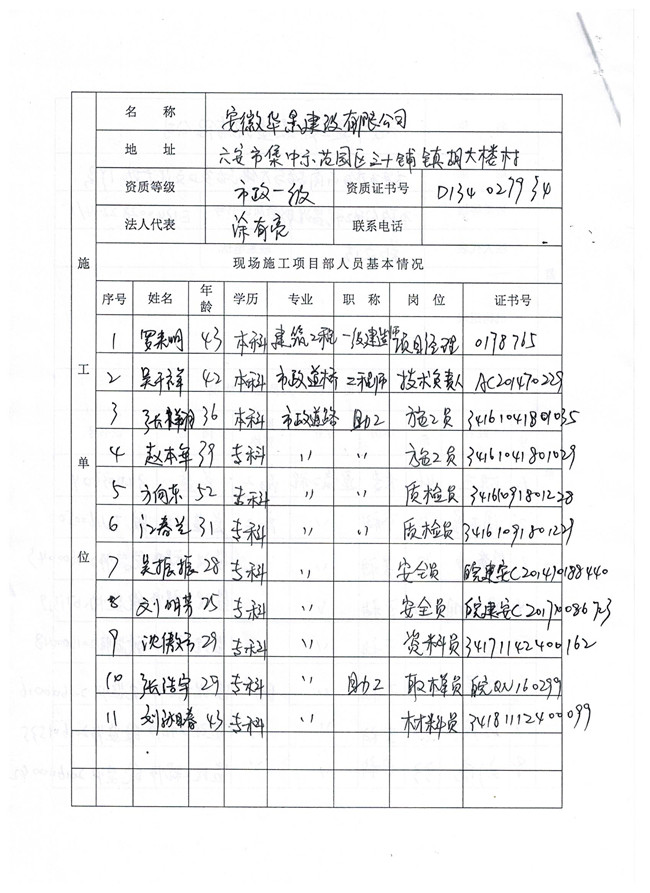 名 称 安徽华杲建设有限公司
地 址 六安市集中示范园区三十铺镇胡大楼村
资质等级 市政一级 资质证书号 D134027954
法人代表 涂有亮 联系电话
施工单位
现场施工项目部人员基本情况
序号 姓名 年龄 学历 专业 职 称 岗 位 证书号
1 罗来明 43 本科 建筑工程 一级建造师 项目经理 0178765
2 吴于祥 42 本科 市政道桥 工程师 技术负责人 AC201470229
3 张祥明 36 本科 市政道路 助工 施工员 34161041801035
4 赵本年 39 专科 〃 〃 施工员 34161041801029
5 方向东 52 专科 〃 〃 质检员 34161091801228
6 江春兰 31 专科 〃 〃 质检员 34161091801229
7 吴振振 28 专科 〃 安全员 皖建安C201470188440
8 刘明芳 25 专科 〃 安全员 皖建安C2017
9 沈傲 29 专科 〃 资料员 34171142400162
10 张浩宇 29 专科 〃 助工 取样员 皖QN160299
11 刘咏春 43 专科 〃 材料员 34181112400099